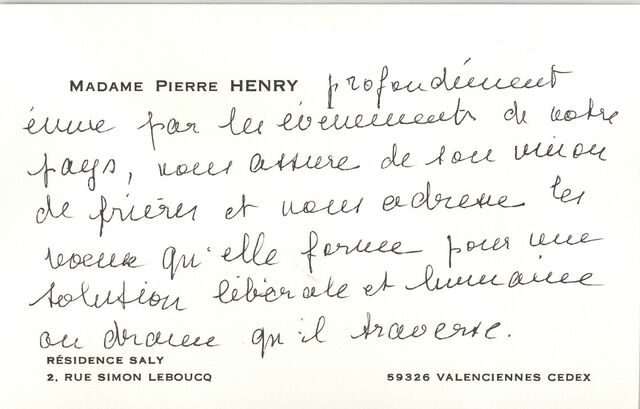 MADAME PIERRE HENRY profondément
émue par les évènements de votre
pays, vous assure de son union
de prières et vous adresse les
voeux qu'elle forme pour une
solution libérale et humaine
au drame qu'il traverse.
RÉSIDENCE SALY
2, RUE SIMON LEBOUCQ 59326 VALENCIENNES CEDEX